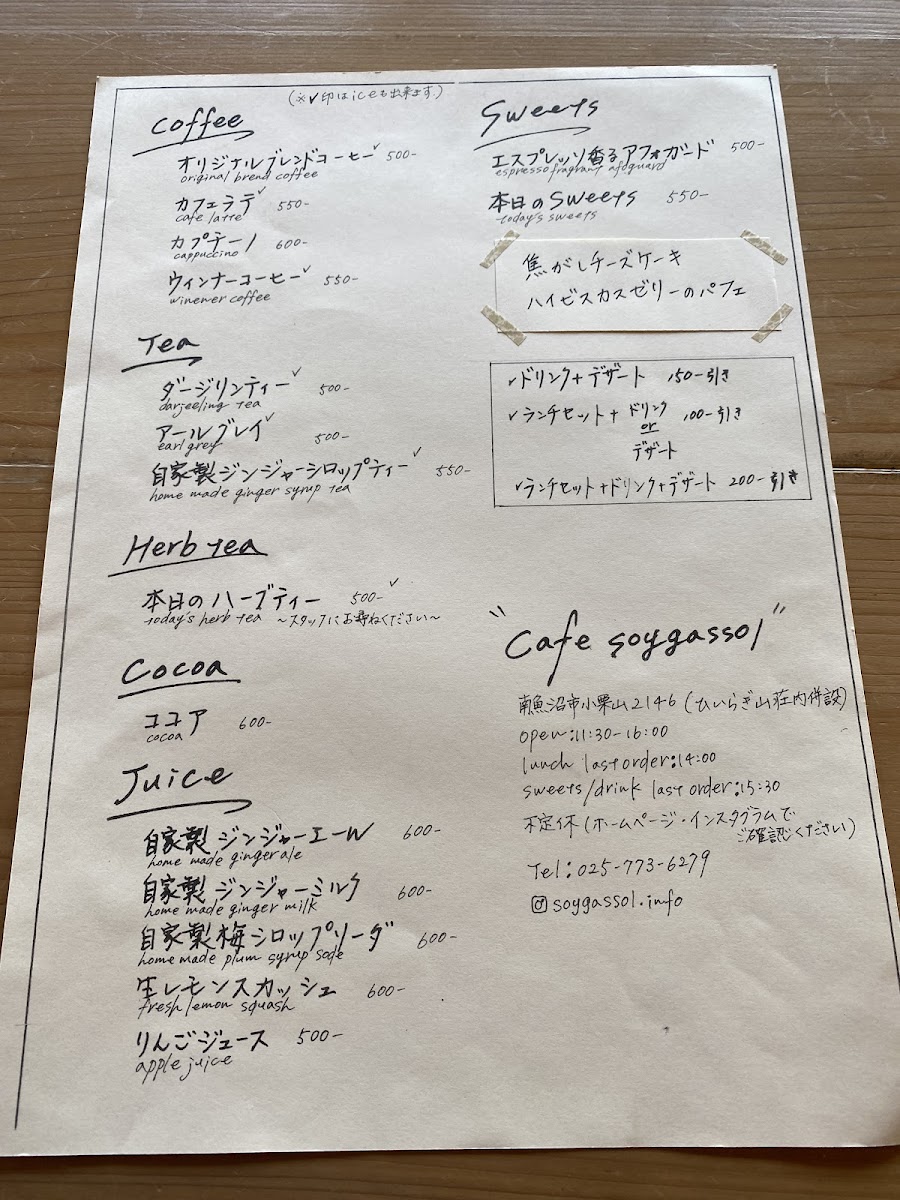 (※✓印はiceも出来ます。)
Coffee
オリジナルブレンドコーヒー✓ 500-
original brend coffee
カフェラテ✓ 550-
cafe latte
カプチーノ 600-
cappuccino
ウィンナーコーヒー✓ 550-
winewer coffee
Tea
ダージリンティー✓ 500-
darjeeling tea
アールグレイ✓ 500-
earl grey
自家製ジンジャーシロップティー✓ 550-
home made ginger syrup tea
Herb tea
本日のハーブティー 500-✓
today's herb tea ～スタッフにお尋ねください～
Cocoa
ココア 600-
cocoa
Juice
自家製ジンジャーエール 600-
home made ginger ale
自家製ジンジャーミルク 600-
home made ginger milk
自家製梅シロップソーダ 600-
home made plum syrup sode
生レモンスカッシュ 600-
fresh lemon squash
りんごジュース 500-
apple juice
Sweets
エスプレッソ香るアフォガード 500-
espresso fragrant afoguard
本日のSweets 550-
today's sweets
焦がしチーズケーキ
ハイビスカスゼリーのパフェ
✓ドリンク+デザート 150-引き
✓ランチセット+ドリンク or デザート 100-引き
✓ランチセット+ドリンク+デザート 200-引き
"Cafe soygassol"
南魚沼市小栗山2146(ひいらぎ山荘内併設)
open:11:30-16:00
lunch last order:14:00
sweets/drink last order:15:30
不定休(ホームページ・インスタグラムで
ご確認ください)
Tel:025-773-6279
soygassol.info